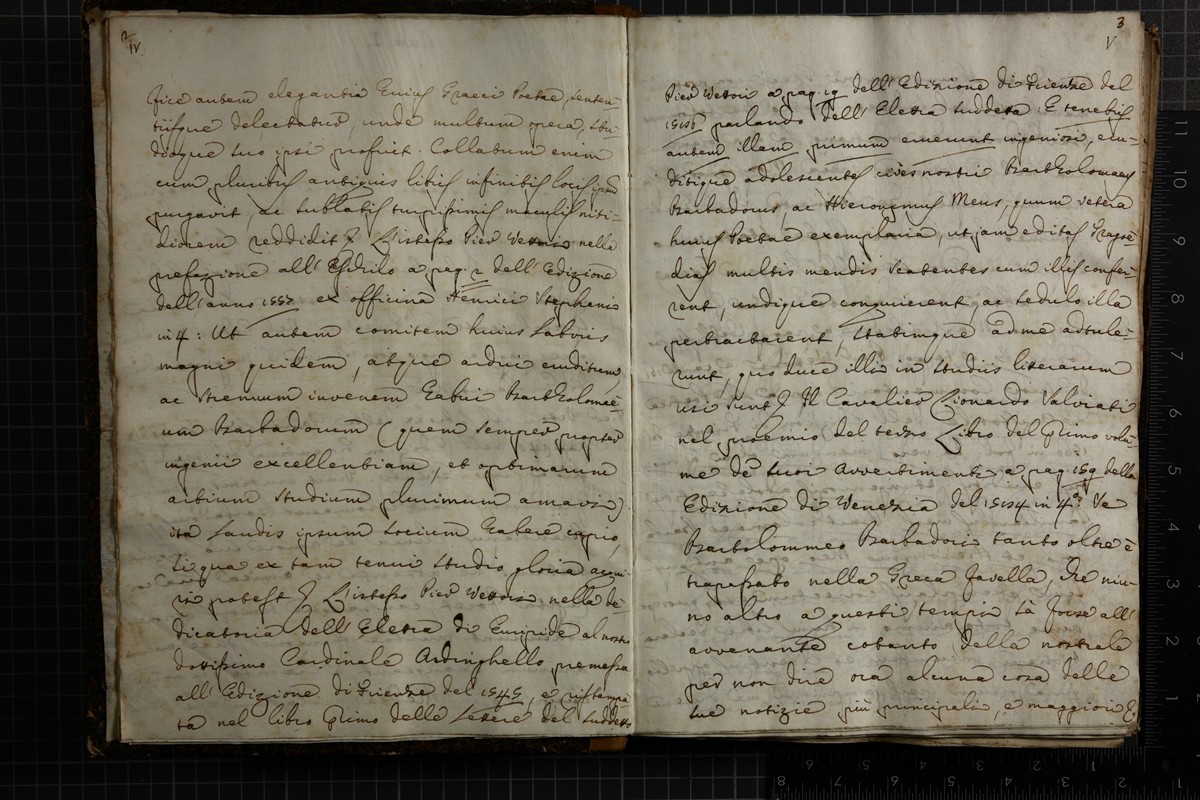 2
IV
fice autem elegantia huius Graeci Poetae, senten-
tiisque delectatus, unde multum opera, stu-
dioque suo ipsi profuit. Collatum enim
cum pluribus antiquis libris infinitis locis ipsum
purgavit, ac sublatis turpissimis maculis niti-
diorem reddidit. L'istesso Pier Vettori nella
prefazione all'Eschilo a pag. 2 dell'Edizione
dell'anno 1557 ex officina Henrici Stephani
in 4: Ut autem comitem huius laboris
magni quidem, atque ardui eruditum,
ac strenuum iuvenem habui Bartholomae-
um Barbadorum (quem semper propter
ingenii excellentiam, et optimarum
artium studium plurimum amavi)
ita laudis ipsum socium habere cupio,
si qua ex tam tenui studio gloria acqui-
ri potest. L'istesso Pier Vettori nella de-
dicatoria dell'Eletra di Euripide al nostro
dottissimo Cardinale Ardinghello premessa
all'Edizione di Firenze del 1545, e ristampa-
ta nel libro primo delle Lettere del suddetto
3
V
Pier Vettori a pag. 19 dell'Edizione di Firenze del
1586 parlando dell'Eletra suddetta: E tenebris
autem illam primum eruerunt ingeniosi, eru-
ditique adolescentes cives nostri Bartholomaeus
Barbadorus, ac Hieronymus Meus, quum vetera
huius Poetae exemplaria, ut jam editas Tragoe-
dias multis mendis scatentes cum illis confer-
rent, undique conquirerent, ac sedulo illa
pertractarent, statimque ad me adtule-
runt, quo duce illi in studiis literarum
usi sunt. Il Cavalier Lionardo Salviati
nel proemio del terzo Libro del primo volu-
me de' suoi Avvertimenti a pag. 159 della
Edizione di Venezia del 1584 in 4.º Ve
Bartolommeo Barbadori tanto oltre è
trapassato nella Greca favella, che niu-
no altro a questi tempi là forse all'
avvenante cotanto della nostrale
per non dire ora alcuna cosa delle
sue notizie più principali, e maggiori. E